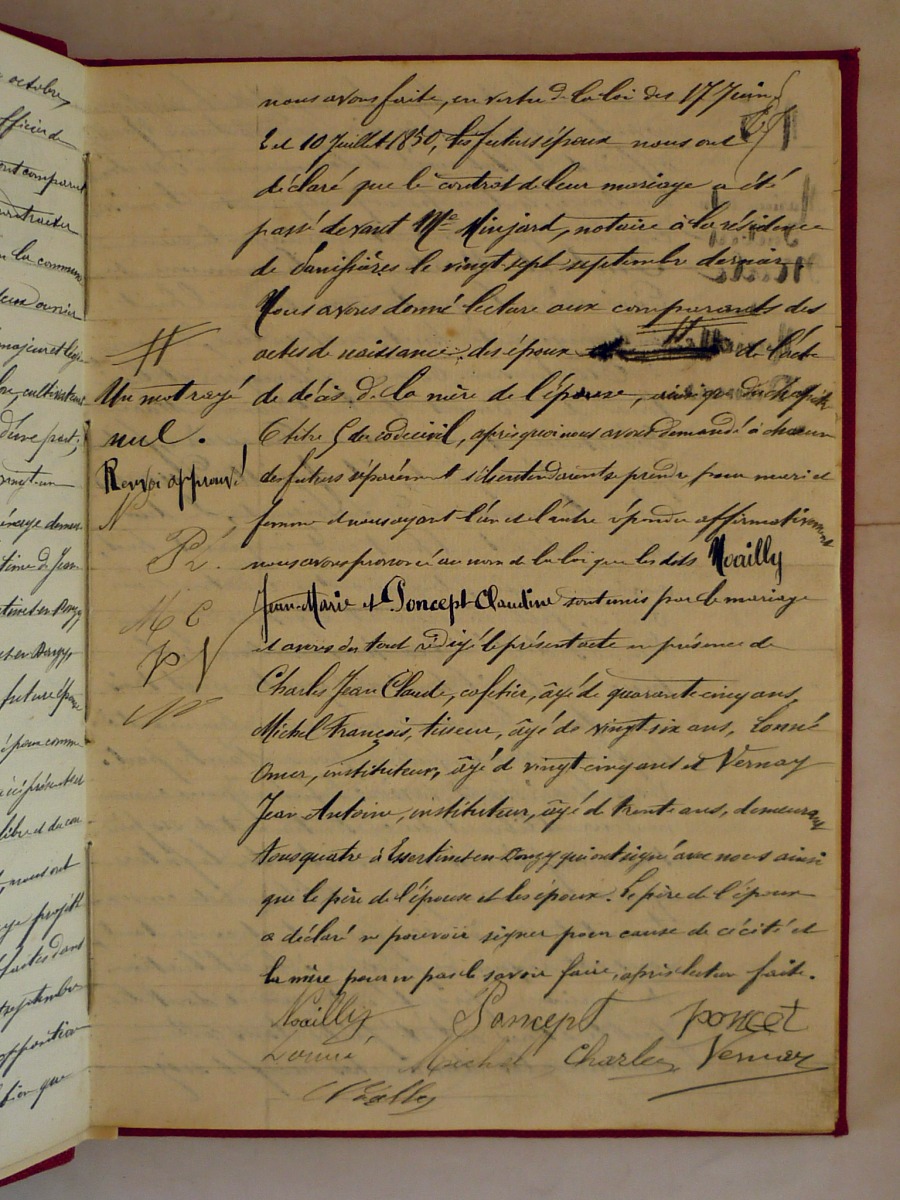 octobre,
officier de
ont comparu
contracter
la commune
majeur et
cultivateur
d'une part,
time de Jean
et en Donzy,
future épouse
libre et du
nous ont
projeté
septembre
opposition
nous avons faite, en vertu de la loi des 17 Juin
et 10 Juillet 1850, les futurs époux nous ont
déclaré que le contrat de leur mariage a été
passé devant Me Minjard, notaire à la résidence
de Panissières le vingt sept septembre dernier.
Nous avons donné lecture aux comparants des
actes de naissance des époux # et de l'acte
de décès de la mère de l'épouse, ainsi que du chapitre
6 titre 5 du code civil, après quoi nous avons demandé à chacun
des futurs séparément s'ils entendaient se prendre pour mari et
femme et nous ayant l'un et l'autre répondu affirmativement
nous avons prononcé au nom de la loi que les dits Noailly
Jean-Marie et Poncept Claudine sont unis par le mariage
et avons du tout rédigé le présent acte en présence de
Charles Jean Claude, cafetier, âgé de quarante cinq ans,
Michel François, tisseur, âgé de vingt six ans, Lonné
Omer, instituteur, âgé de vingt cinq ans et Vernay
Jean Antoine, instituteur, âgé de trente ans, demeurant
tous quatre à Essertines en Donzy qui ont signé avec nous ainsi
que le père de l'épouse et les époux. Le père de l'époux
a déclaré ne pouvoir signer pour cause de cécité et
la mère pour ne pas le savoir faire, après lecture faite.
#
Un mot rayé
nul.
Renvoi approuvé
N
M C
P V
Noailly Poncept poncet
Lonné Michel Charles Vernay